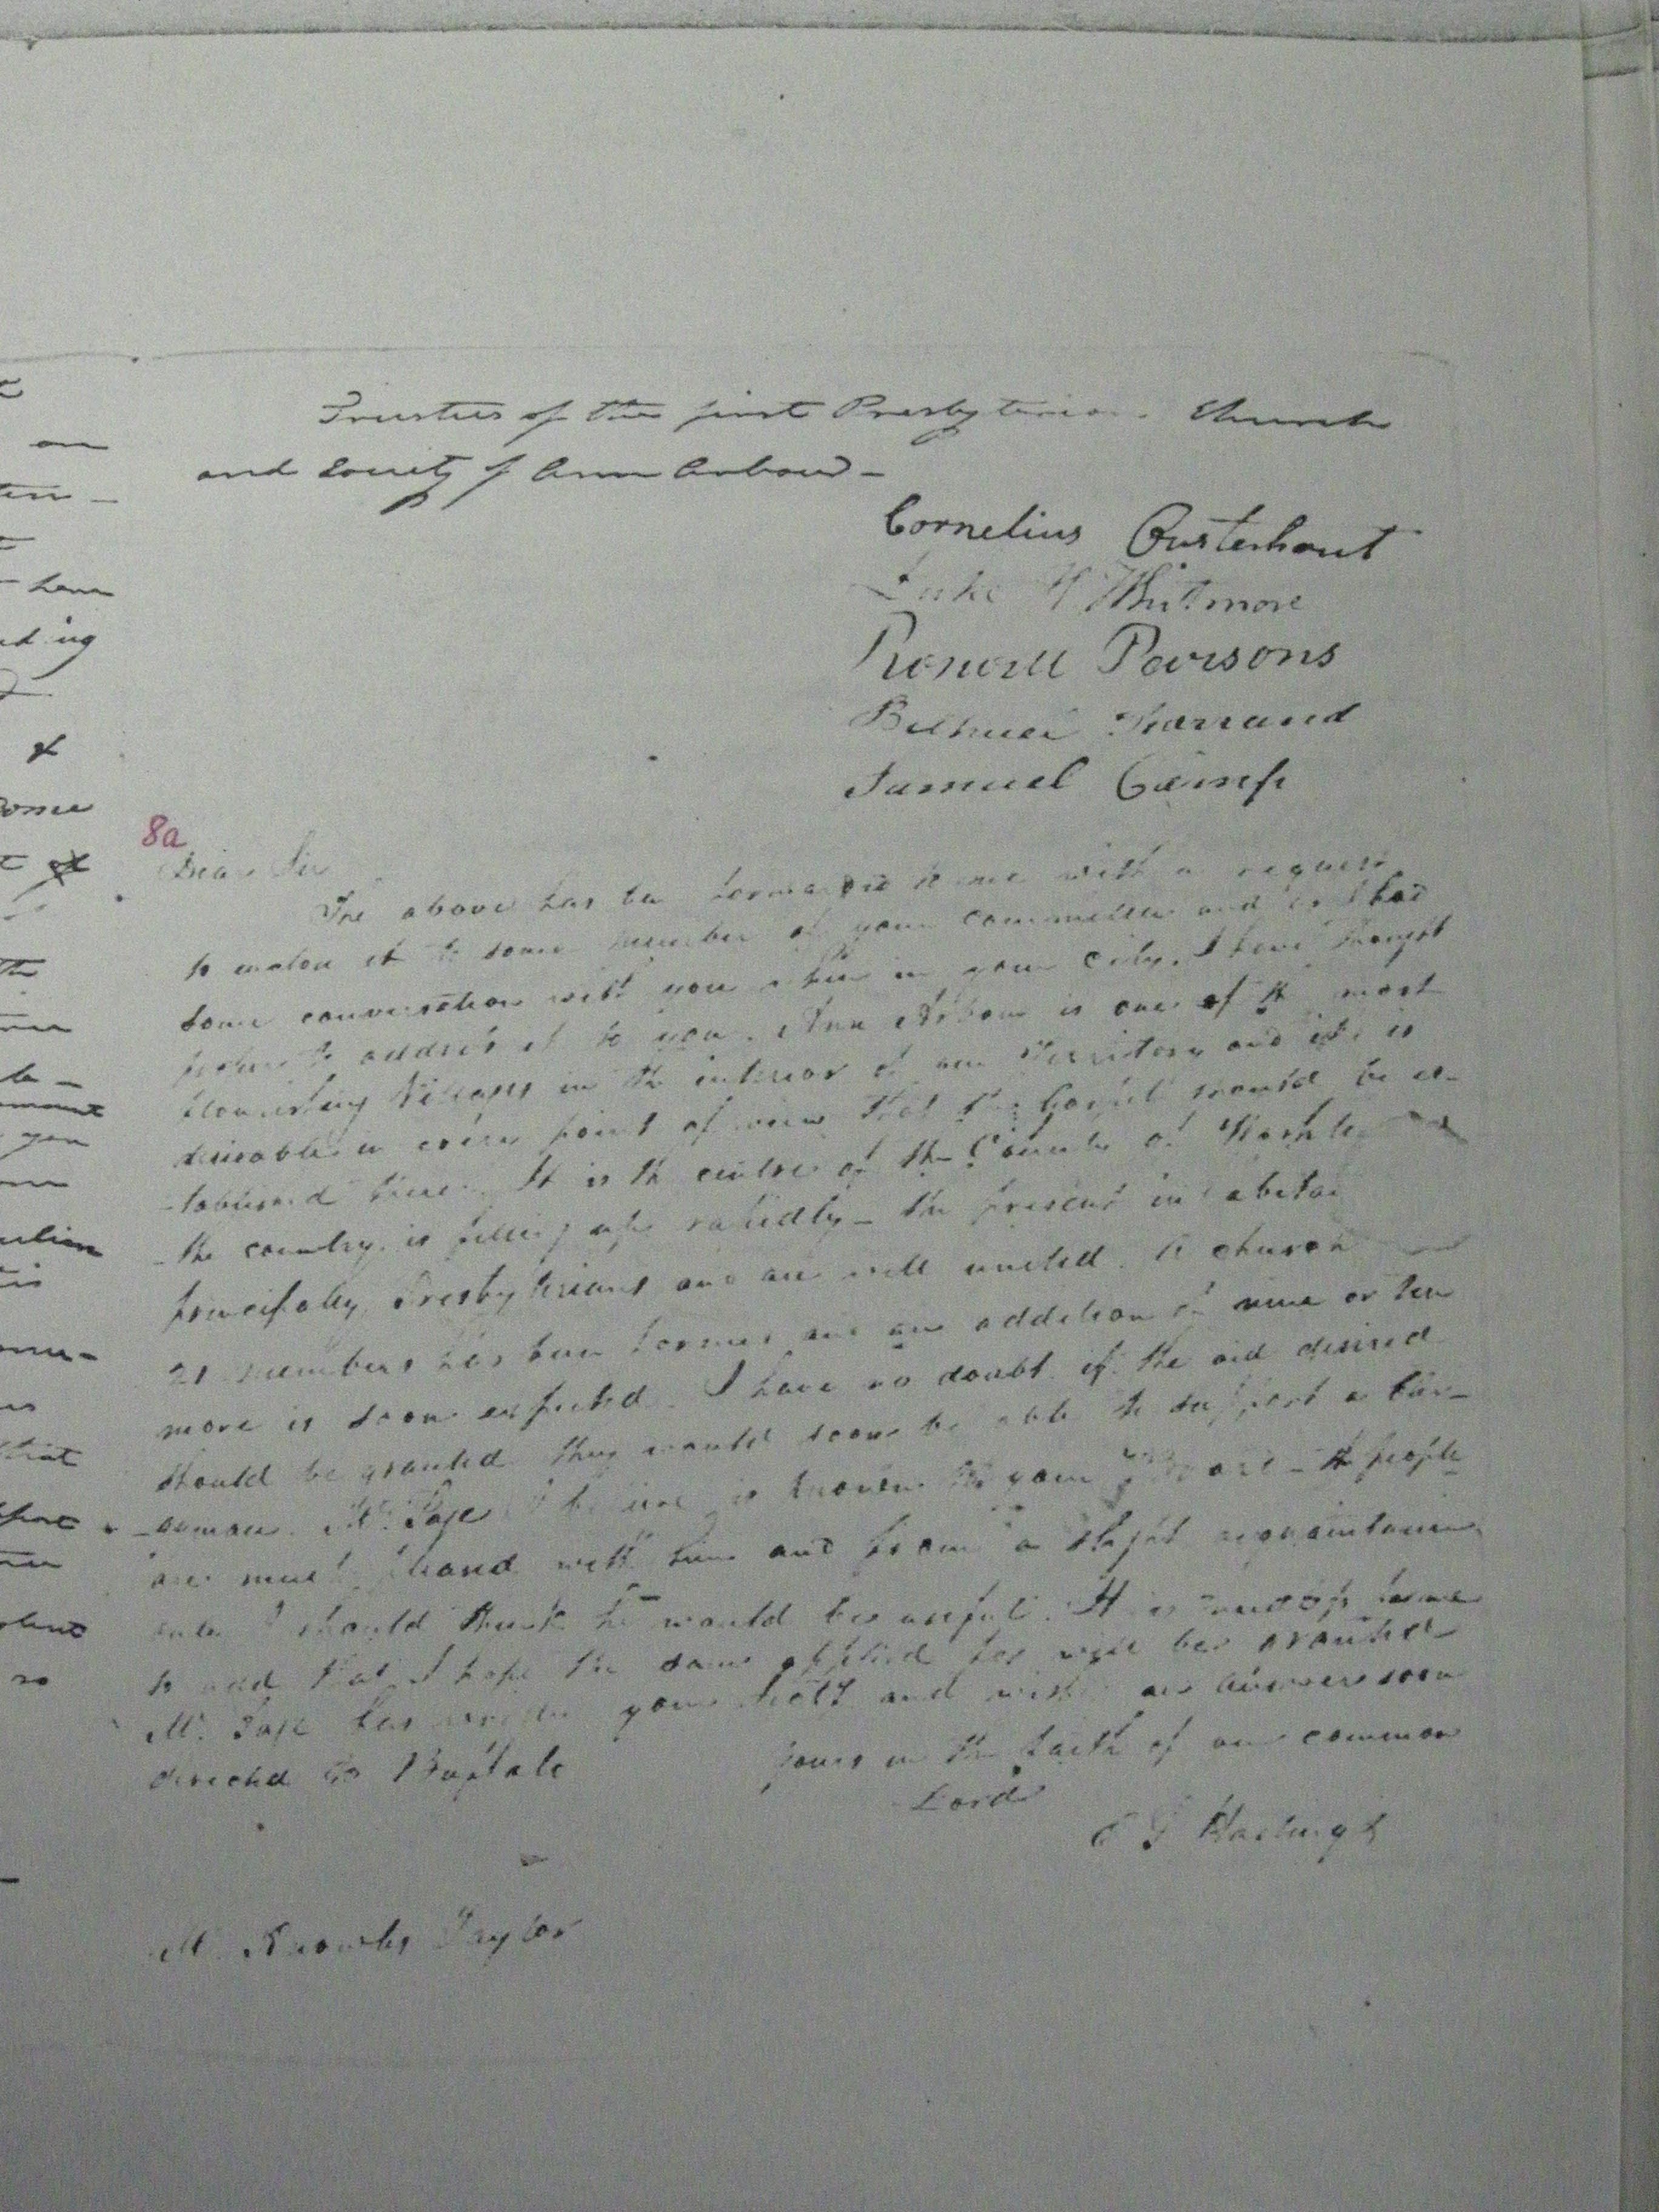 Trustees of the first Presbyterian Church
and Society of Ann Arbour -
Cornelius Ousterhout
Luke H Whitmore
Roswell Parsons
Bethuel Farrand
Samuel Camp
8a
Dear Sir
The above has been forwarded to me with a request
to enclose it to some member of your committee and as I had
some conversation with you when in your city, I have thought
proper to address it to you. Ann Arbour is one of the most
flourishing Villages in the interior of our Territory and it is
desirable in every point of view that the Gospel should be es-
-tablished there. It is the centre of the County of
- the country is filling up rapidly - the present inhabitants
principally Presbyterians and are well united. A church
21 members has been formed and an addition of nine or ten
more is soon expected. I have no doubt if the aid desired
should be granted they would soon be able to support a Cler-
-gyman. Mr. Page I believe is known to your Board - the people
are much pleased with him and from a slight acquaintance
I should think he would be useful. It is
to add that I hope the sum applied for will be granted
Mr. Page has written your and wishes an answer soon
directed to Buffalo
Yours in the faith of our common
Lord
E P Hastings
Mr. Knowles Taylor
an
have
ding
of
some
of
the
you
that
so